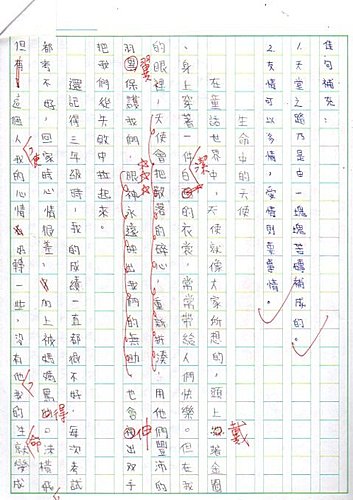 佳句補充
1.天堂之路乃是由一塊塊苦磚補成的。
2.友情可以多情,愛情則要專情。
生命中的天使
在童話世界中,天使就像大家所想的,頭上戴著金圈
、身上穿著一件白潔的衣裳,常常帶給人們快樂。但在我
的眼裡,天使會把散落的碎心,重新拼湊,用他們豐沛的
羽翼保護我們,眼神永遠映出我們的無助,也會伸出雙手
把我們從失敗中拉起來。
還記得三年級時,我的成績一直都很不好,每次考試
都考不好,回家時心情很差,上被媽媽罵得
但有這個人使我的心情好轉一些,沒有他,我的生命就變成